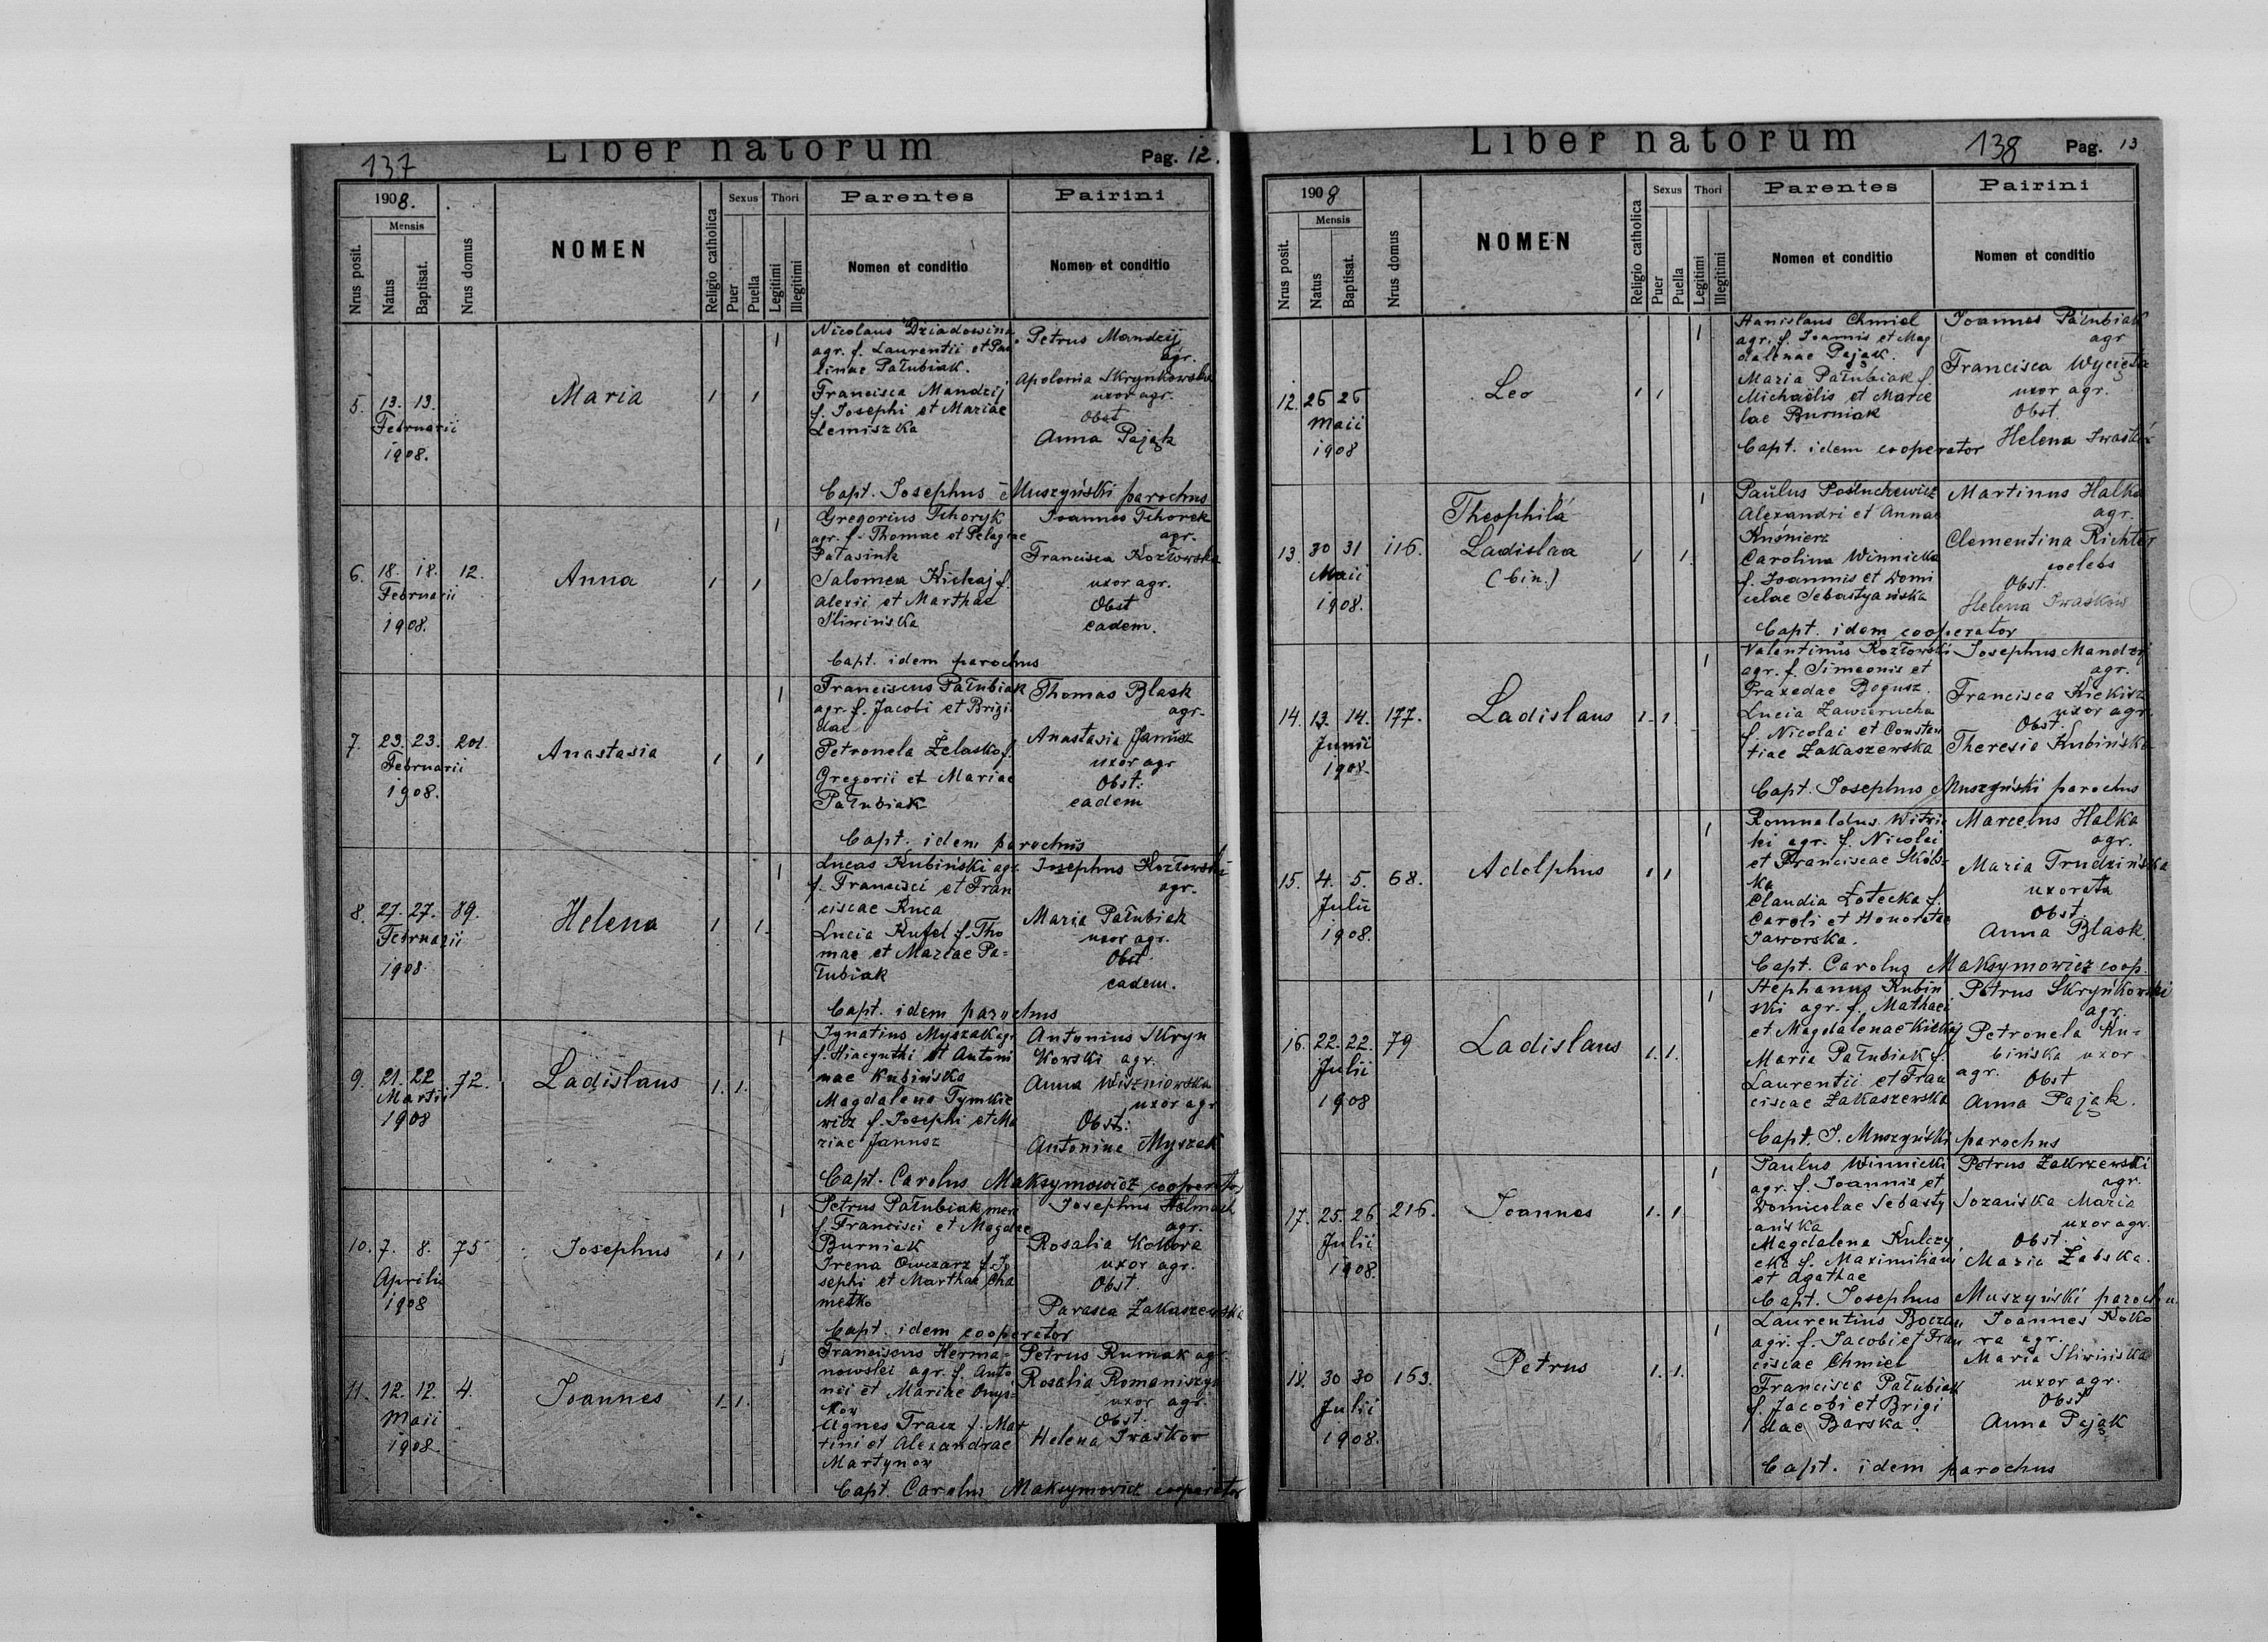 137
Liber natorum
Pag. 12.
1908.
Mensis
Nrus posit.
Natus
Baptisat.
Nrus domus
NOMEN
Religio catholica
Sexus
Puer
Puella
Thori
Legitimi
Illegitimi
Parentes
Nomen et conditio
Pairini
Nomen et conditio
5.
13. 13.
Februarii
1908.
Maria
1
1
1
Nicolaus Dziadowina
agr. f. Laurentii et Pau
linae Pałubiak.
Francisca Mandzij
f. Josephi et Mariae
Lemiszka
Petrus Mandzij
agr.
Apolonia Skrynkowska
uxor agr.
Obst
Anna Pająk
Capt. Josephus Muszyński parochus
6.
18. 18.
Februarii
1908.
12.
Anna
1
1
1
Gregorius Tchoryk
agr. f. Thomae et Pelagiae
Patasink
Salomea Kickaj f.
Alexii et Marthae
Śliwińska
Joannes Tchorek
agr.
Francisca Kozłowska
uxor agr.
Obst
eadem.
Capt. idem parochus
7.
23. 23.
Februarii
1908.
201.
Anastasia
1
1
1
Franciscus Pałubiak
agr. f. Jacobi et Brigi
dae
Petronela Żelasko f.
Gregorii et Mariae
Pałubiak
Thomas Blask
agr.
Anastasia Janusz
uxor agr
Obst:
eadem
Capt. idem parochus
8.
27. 27.
Februarii
1908.
89.
Helena
1
1.
1
Lucas Kubiński agr.
f. Francisci et Fran
ciscae Kuca
Lucia Kufel f. Tho
mae et Mariae Pa=
łubiak
Josephus Kozłowski
agr.
Maria Pałubiak
uxor agr.
Obst
eadem.
Capt. idem parochus
9.
21. 22
Martii
1908
72.
Ladislaus
1.
1.
1
Ignatius Myszak agr
f. Hiacynthi et Antoni
nae Kubińska
Magdalena Tymkie
wicz f. Josephi et Ma
riae Janusz
Antonius Skryn
kowski agr.
Anna Wiszniowska
uxor agr
Obst:
Antonine Myszak
Capt. Carolus Maksymowicz cooperator
10.
7. 8.
Aprilis
1908
75
Josephus
1
1
1
Petrus Pałubiak
f. Francisci et Magdae
Burniak
Irena Owczarz f. Jo
sephi et Marthae Cha
metko
Josephus Helmach
agr.
Rosalia Kokora
uxor agr.
Obst
Parasca Zakaszewska
Capt. idem cooperator
11.
12. 12.
Maii
1908.
4.
Joannes
1
1.
1
Franciscus Herma=
nowski agr. f. Anto
nii et Mariae Onyś=
kow
Agnes Tracz f. Mar
tini et Alexandrae
Martynow
Petrus Rumak agr.
Rosalia Romaniszyn
uxor agr.
Obst.
Helena Iwaśkow
Capt. Carolus Maksymowicz cooperator
Liber natorum
138
Pag. 13
1908
Mensis
Nrus posit.
Natus
Baptisat.
Nrus domus
NOMEN
Religio catholica
Sexus
Puer
Puella
Thori
Legitimi
Illegitimi
Parentes
Nomen et conditio
Pairini
Nomen et conditio
12.
26 26
Maii
1908
Leo
1
1
1
Stanislaus Chmiel
agr. f. Joannis et Mag
dalenae Pająk.
Maria Pałubiak f.
Michaëlis et Marce
lae Burniak
Joannes Pałubiak
agr
Francisca Wycięta
uxor agr.
Obst
Helena Iwaśków
Capt. idem cooperator
13.
30 31
Maii
1908.
116.
Theophila
Ladislaa
(bin.)
1
1.
1
Paulus Posłuchewicz
Alexandri et Annae
Kuśnierz
Carolina Winnicka
f. Joannis et Domi
celae Sebastyańska
Martinus Halka
agr.
Clementina Richter
coelebs
Obst.
Helena Iwaśkow
Capt. idem cooperator
14.
13. 14.
Junii
1908.
177.
Ladislaus
1.
1.
1
Valentinus Kozłowski
agr. f. Simeonis et
Praxedae Bogusz.
Lucia Zawierucha
f. Nicolai et Constan
tiae Zakaszewska
Josephus Mandzij
agr.
Francisca Kiekisz
uxor agr
Obst.
Theresia Kubińska
Capt. Josephus Muszyński parochus
15.
4. 5.
Julii
1908.
68.
Adolphus
1
1
1
Romualdus Witwic
ki agr. f. Nicolai
et Franciscae Skóls-
ka
Claudia Łotecka f.
Caroli et Honoratae
Jaworska.
Marcelus Halka
agr.
Maria Trudzińska
uxorata
Obst.
Anna Blask
Capt. Carolus Maksymowicz coop.
16.
22. 22.
Julii
1908
79
Ladislaus
1.
1.
1
Stephanus Kubiń
ski agr. f. Mathaei
et Magdalenae Kickaj
Maria Pałubiak f.
Laurentii et Fran
ciscae Zakaszewska
Petrus Skryńkowski
agr.
Petronela Ku=
bińska uxor
agr.
Obst
Anna Pająk.
Capt. J. Muszyński parochus
17.
25. 26
Julii
1908.
216.
Joannes
1.
1.
1
Paulus Winnicki
agr. f. Joannis et
Domicelae Sebasty
ańska
Magdalena Kulczy
cka f. Maximiliani
et Agathae
Petrus Zakrzewski
agr.
Sozańska Maria
uxor agr.
Obst.
Maria Żabska.
Capt. Josephus Muszyński parochus
18.
30 30
Julii
1908.
163.
Petrus
1.
1.
1
Laurentius Boczar
agr. f. Jacobi et Fran
ciscae Chmiel
Francisca Pałubiak
f. Jacobi et Brigi
dae Barska.
Joannes Koko
ra agr.
Maria Śliwińska
uxor agr.
Obst
Anna Pająk
Capt. idem parochus